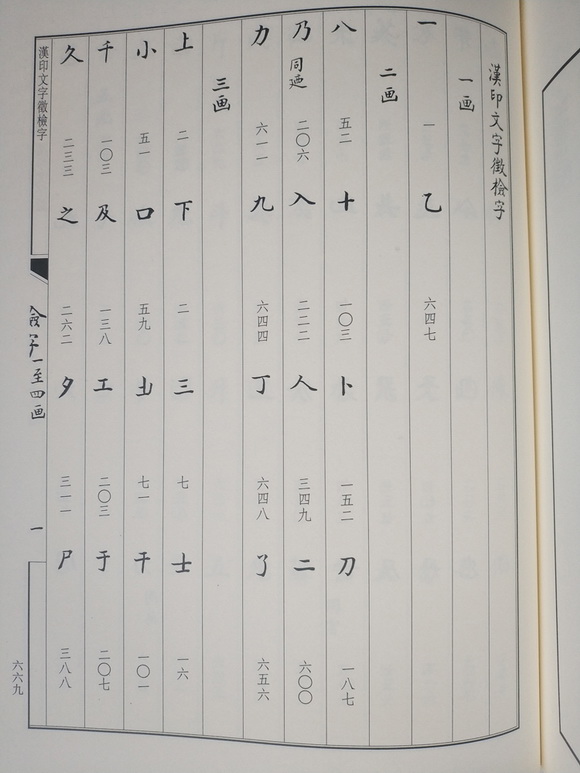 漢印文字徵檢字
一画
一 一 乙 六四七
二画
八 五二 十 一〇三 卜 一五二 刀 一八七
乃 同迺 二〇六 入 二二二 人 三四九 二 六〇〇
力 六一一 九 六四四 丁 六四八 了 六五六
三画
上 二 下 二 三 七 士 一六
小 五一 口 五九 㞢 七一 干 一〇一
千 一〇三 及 一三八 工 二〇三 于 二〇七
久 二三三 之 二六二 夕 三一一 尸 三八八
漢印文字徵檢字
檢字一至四画
一
六六九